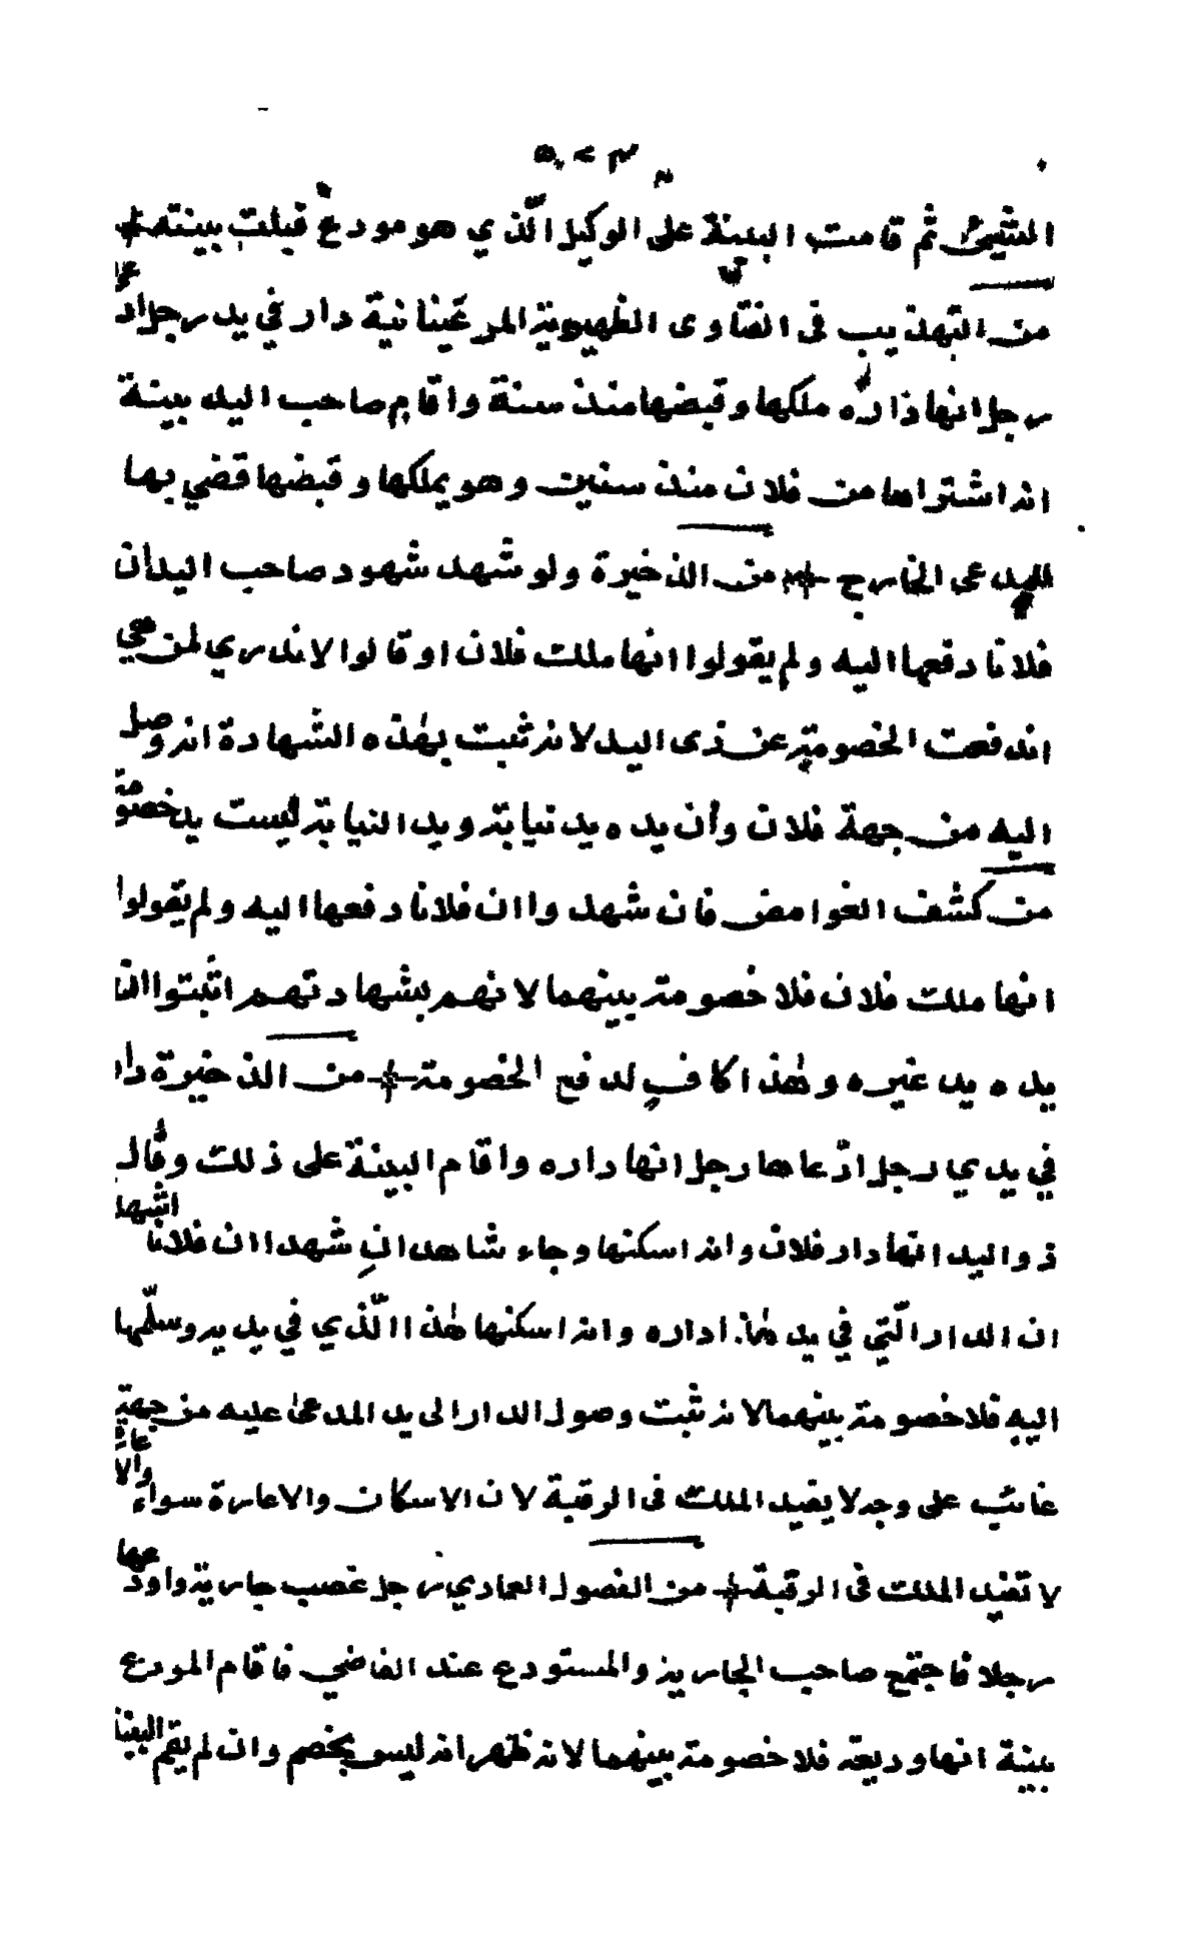 الشيئ ثم قامت البينة على الوكيل الّذي هو مودع قبلت بينته
من التهذيب فى الفتاوى الظهيرية المرغينانية دار في يد رجل ادّعى
رجل انها داره ملكها وقبضها منذ سنة واقام صاحب اليد بينة
انه اشتراها من فلان منذ سنين وهو يملكها وقبضها قضي بها
للمدعى الخارج من الذخيرة ولو شهد شهود صاحب اليد ان
فلانا دفعها اليه ولم يقولوا انها ملك فلان او قالوا لا ندري لمن هي
اندفعت الخصومة عن ذى اليد لانه ثبت بهذه الشهادة انه وصل
اليه من جهة فلان وأن يده يد نيابة ويد النيابة ليست يد خصومة
من كشف الغوامض فان شهدوا ان فلانا دفعها اليه ولم يقولوا
انها ملك فلان فلا خصومة بينهما لانهم بشهادتهم اثبتوا ان
يده يد غيره وهذا كاف لدفع الخصومة من الذخيرة دار
في يدي رجل ادّعاها رجل انها داره واقام البينة على ذلك وقال
ذو اليد انها دار فلان وانه اسكنها وجاء شاهدان شهدا ان فلانا اشهدها
ان الدار الّتي في يد هذا داره وانه اسكنها هذا الّذي في يديه وسلّمها
اليه فلا خصومة بينهما لانه ثبت وصول الدار الى يد المدعى عليه من جهة
غائب على وجه لا يفيد الملك فى الرقبة لان الاسكان والاعارة سواء والاعارة
لا تفيد الملك فى الرقبة من الفصول العمادي رجل غصب جارية واودعها
رجلا فاجتمع صاحب الجارية والمستودع عند القاضي فاقام المودع
بينة انها وديعة فلا خصومة بينهما لانه ظهر انه ليس بخصم وان لم يقم البينة